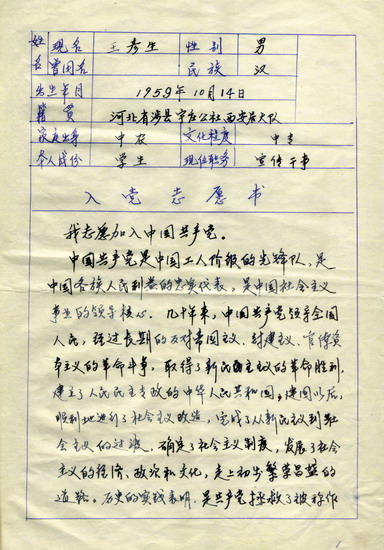 姓名 现名 王彦生 性别 男
曾用名 民族 汉
出生年月 1959年10月14日
籍贯 河北省涉县 公社西安居大队
家庭出身 中农 文化程度 中专
本人成份 学生 现任职务 宣传干事
入党志愿书
我志愿加入中国共产党。
中国共产党是中国工人阶级的先锋队,是
中国各族人民利益的忠实代表,是中国社会主义
事业的领导核心。几十年来,中国共产党领导全国
人民,经过长期的反对帝国主义、封建主义、官僚资
本主义的革命斗争,取得了新民主主义的革命胜利,
建立了人民民主专政的中华人民共和国;建国以后,
顺利地进行了社会主义改造,完成了从新民主主义到社
会主义的过渡,确定了社会主义制度,发展了社会
主义的经济、政治和文化,走上初步繁荣昌盛的
道路。历史的实践表明,是共产党拯救了被称作